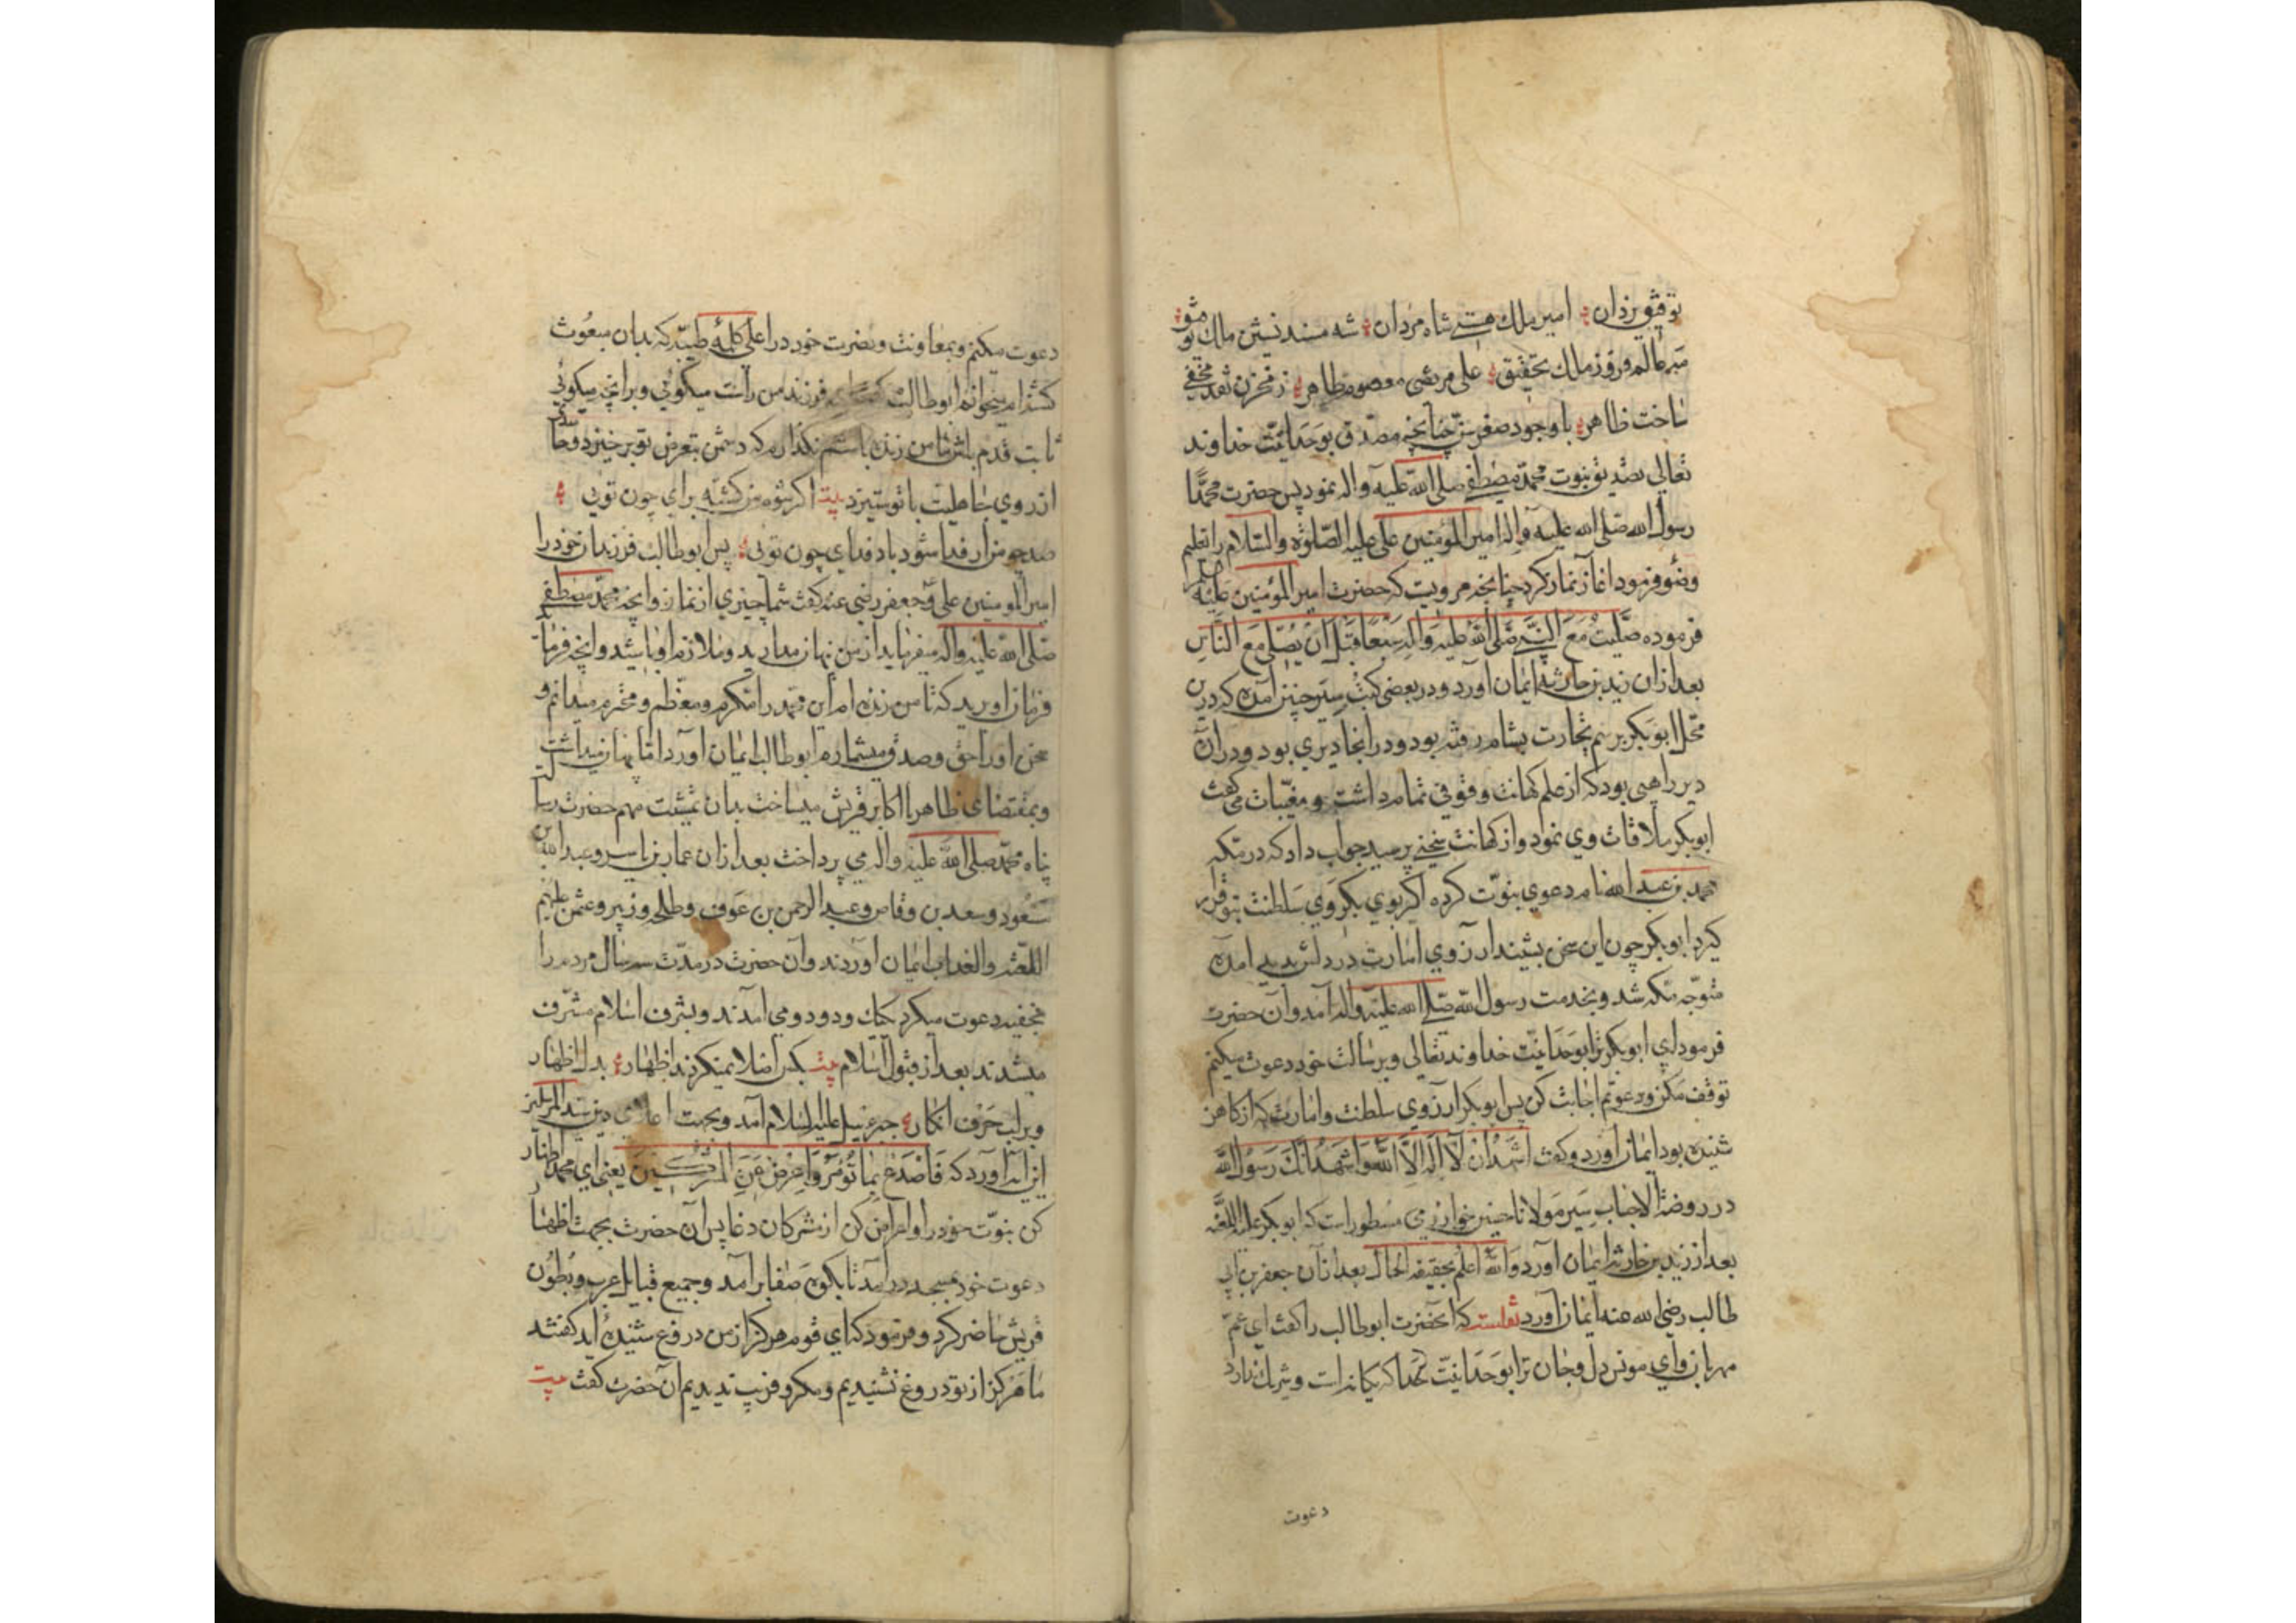 توفیق یزدان امیر ملک هستی شاه مردان شه مسند نشین ملک
عالم فروز ملک تحقیق علی مرتضی معصوم طاهر ز مخزن نقد مخفی
ساخت ظاهر با وجود صغر سن چنانچه مصدق بوحدانیّت خداوند
تعالی تصدیق نبوت محمّد مصطفی صلی الله علیه وآله نمود پس حضرت محمّدا
رسول الله صلی الله علیه وآله امیر المؤمنین علی علیه الصّلوة والسّلام را تعلیم
وضو فرمود اغاز نماز کرد چنانچه مرویست که حضرت امیر المؤمنین علیه السلم
فرموده صَلَّیتُ مَعَ النَّبیِّ صَلَّی اللهُ عَلَیهِ وَآلِهِ سَبْعًا قَبْلَ اَنْ یُصَلّی مَعَ النَّاسِ
بعد ازان زید بن حارثه ایمان آورد ودر بعضی کتب سیر چنین آمده که درین
محل ابوبکر برسم تجارت بشام رفته بود ودر انجا دیری بود ودران
دیر راهبی بود که از علم کهانت وقوفی تمام داشت ومغیبات می گفت
ابوبکر ملاقات وی نمود واز کهانت سخنی پرسید جواب داد که در مکّه
محمد بن عبد الله نام دعوی نبوّت کرده اگر بوی بگروی سلطنت بتو قرار
گیرد ابوبکر چون این سخن بشنید ارزوی امارت در دلش پدید امده
متوجّه مکه شد وبخدمت رسول الله صلی الله علیه وآله آمد وآن حضرت
فرمود ای ابوبکر ترا بوحدانیّت خداوند تعالی وبرسالت خود دعوت میکنم
توقف مکن ودعوتم اجابت کن پس ابوبکر ارزوی سلطنت وامارت که از کاهن
شنیده بود ایمان آورد وگفت اَشْهَدُ اَنْ لَا اِلٰهَ اِلَّا اللهُ وَاَشْهَدُ اَنَّكَ رَسُولُ الله
در روضة الاحباب سِیَر مولانا حسین خوارزمی مسطور است که ابوبکر علیه اللعنه
بعد از زید بن حارثه ایمان آورد واللهُ اعلم بحقیقة الحال بعد ازان جعفر بن ابی
طالب رضی الله عنه ایمان آورد نقلست که انحضرت ابوطالب را گفت ای عمّ
مهربان وای مونس دل وجان ترا بوحدانیّت خدا که یگانه است وشریك ندارد
دعوت
دعوت میکنم وبمعاونت ونصرت خود در اعلی کلمهٔ طیّبه که بدان مبعوث
گشته ام میخوانم ابوطالب گفت ای فرزند من راست میگوئی وبرانچه میگوئی
ثابت قدم باش تا من زنده باشم نگذارم که دشمن بتعرض تو برخیزد
از روی جاهلیت با تو ستیزد بیت اگر شوم من کشته برای چون توئی
صد چو من ار فدا شود باد فدای چون توئی پس ابوطالب فرزندان خود را
امیر المومنین علی وجعفر رضی عنه گفت شما چیزی از نماز وانچه محمّد مصطفی
صلی الله علیه وآله میفرماید از من نهان مدارید وملازم او باشید وانچه فرماید
فرمان اورید که تا من زنده ام این محمّد را مکرم ومعظم ومحترم میدانم و
سخن او را حق وصدق میشمارم ابوطالب ایمان آورد امّا پنهان میداشت
وبمقتضای ظاهر با اکابر قریش میساخت بدان تمشیت مهم حضرت رسالت
پناه محمّد صلی الله علیه وآله می پرداخت بعد ازان عمار بن یاسر وعبد الله بن
مسعود وسعد بن وقاص وعبد الرحمن بن عوف وطلحه وزبیر وعثمن علیهم
اللعنة والعذاب ایمان آوردند وآن حضرت در مدّت سه سال مردم را
مخفیه دعوت میکرد یکیك ودو دو می آمدند وبشرف اسلام مشرف
میشدند بعد از قبول اسلام بیت بکس اصلا نمیکردند اظهار بدل اظهار
وبر لب حرف انکار جبرئیل علیه السّلام آمد وبجهت دین سید المرسلین
این آیه آورد که فَاصْدَعْ بِمَا تُؤْمَرُ وَاَعْرِضْ عَنِ الْمُشْرِكِینَ یعنی ای محمّد اظهار
کن نبوّت خود را واعراض کن از مشرکان دغا پس آن حضرت بجهت اظهار
دعوت خود بمسجد درآمد تا بکوه صفا برآمد وجمیع قبایل عرب وبطون
قریش حاضر کرد وفرمود که ای قوم هرگز از من دروغ شنیده اید گفتند
ما هرگز از تو دروغ نشنیدیم ومکر وفریب ندیدیم آن حضرت گفت بیت